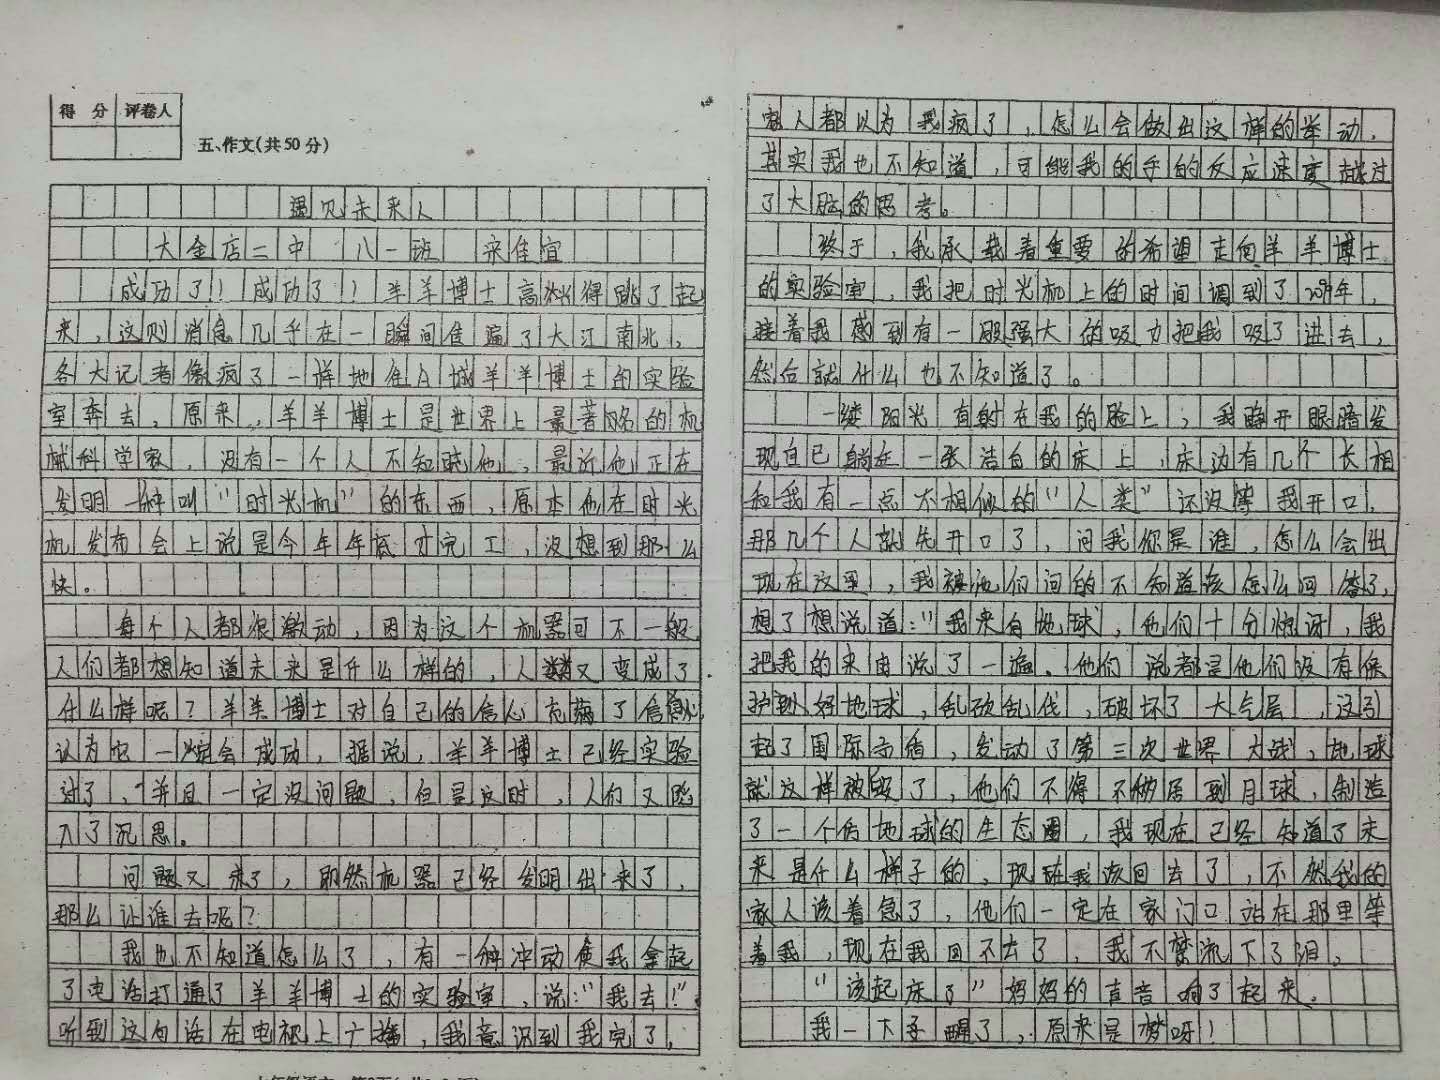 得 分 评卷人
五、作文(共50分)
遇见未来人
大金店二中 八一班 宋佳宜
成功了!成功了!羊羊博士高兴得跳了起
来,这则消息几乎在一瞬间传遍了大江南北,
各大记者像疯了一样地往A城羊羊博士的实验
室奔去,原来,羊羊博士是世界上最著名的机
械科学家,没有一个人不知晓他,最近他正在
发明一种叫"时光机"的东西,原本他在时光
机发布会上说是今年年底才完工,没想到那么
快。
每个人都很激动,因为这个机器可不一般
人们都想知道未来是什么样的,人类又变成了
什么样呢?羊羊博士对自己的信心充满了信心
认为它一定会成功,据说,羊羊博士已经实验
过了,并且一定没问题,但是这时,人们又陷
入了沉思。
问题又来了,既然机器已经发明出来了,
那么让谁去呢?
我也不知道怎么了,有一种冲动使我拿起
了电话打通了羊羊博士的实验室,说:"我去!"
听到这句话在电视上广播,我意识到我完了,
家人都以为我疯了,怎么会做出这样的举动,
其实我也不知道,可能我的手的反应速度越过
了大脑的思考。
终于,我承载着重要的希望走向羊羊博士
的实验室,我把时光机上的时间调到了
年,
接着我感到有一股强大的吸力把我吸了进去,
然后就什么也不知道了。
一缕阳光直射在我的脸上,我睁开眼睛发
现自己躺在一张洁白的床上,床边有几个长相
和我有一点不相似的"人类"还没等我开口,
那几个人就先开口了,问我你是谁,怎么会出
现在这里,我被他们问的不知道该怎么回答了,
想了想说道:"我来自地球,他们十分惊讶,我
把我的来由说了一遍、他们说都是他们没有保
护好地球,乱砍乱伐,破坏了大气层,这引
起了国际矛盾,发动了第三次世界大战,地球
就这样被毁了,他们不得不移居到月球,制造
了一个仿地球的生态圈,我现在已经知道了未
来是什么样子的,现在我该回去了,不然我的
家人该着急了,他们一定在家门口站在那里等
着我,现在我回不去了,我不禁流下了泪,
"该起床了"妈妈的声音响了起来。
我一下子醒了,原来是梦呀!